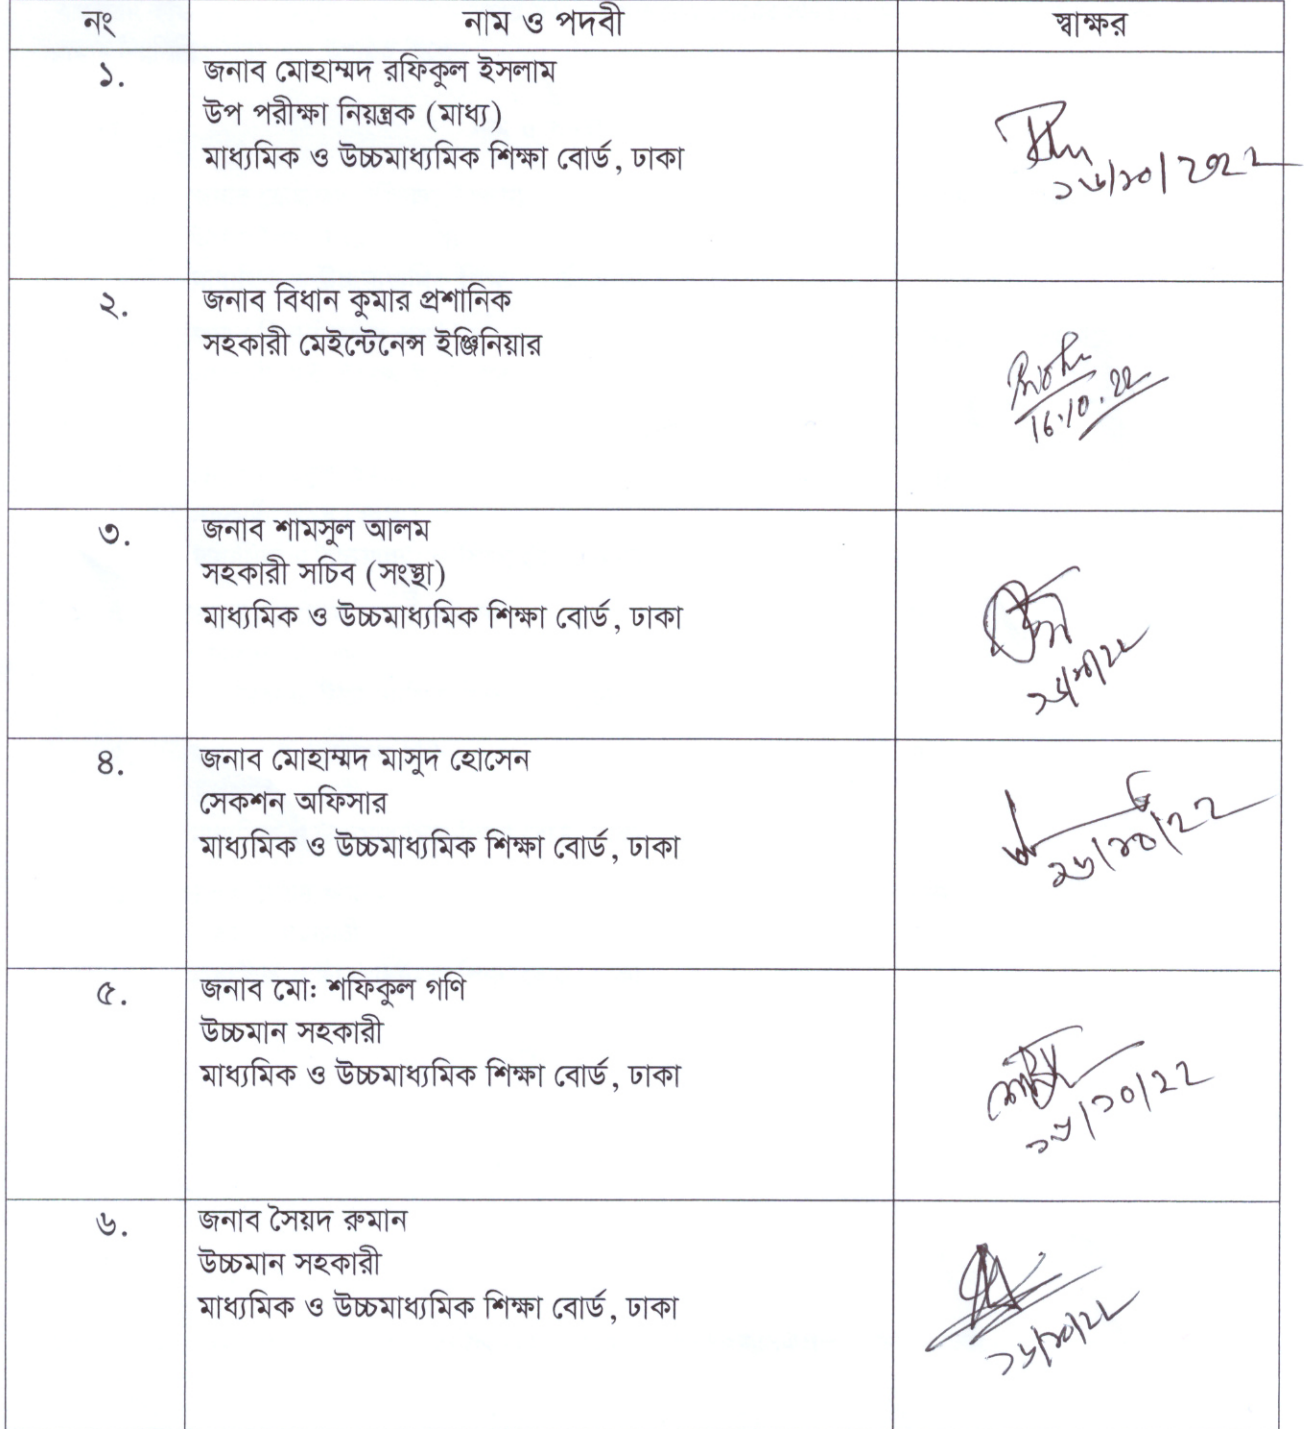 নং নাম ও পদবী স্বাক্ষর
১. জনাব মোহাম্মদ রফিকুল ইসলাম
উপ পরীক্ষা নিয়ন্ত্রক (মাধ্য)
মাধ্যমিক ও উচ্চমাধ্যমিক শিক্ষা বোর্ড, ঢাকা
১৬/১০/2022
২. জনাব বিধান কুমার প্রশানিক
সহকারী মেইন্টেনেন্স ইঞ্জিনিয়ার
16.10.22
৩. জনাব শামসুল আলম
সহকারী সচিব (সংস্থা)
মাধ্যমিক ও উচ্চমাধ্যমিক শিক্ষা বোর্ড, ঢাকা
১৬/১০/২২
৪. জনাব মোহাম্মদ মাসুদ হোসেন
সেকশন অফিসার
মাধ্যমিক ও উচ্চমাধ্যমিক শিক্ষা বোর্ড, ঢাকা
১৬/১০/২২
৫. জনাব মোঃ শফিকুল গণি
উচ্চমান সহকারী
মাধ্যমিক ও উচ্চমাধ্যমিক শিক্ষা বোর্ড, ঢাকা
১৬/১০/২২
৬. জনাব সৈয়দ রুমান
উচ্চমান সহকারী
মাধ্যমিক ও উচ্চমাধ্যমিক শিক্ষা বোর্ড, ঢাকা
১৬/১০/২২